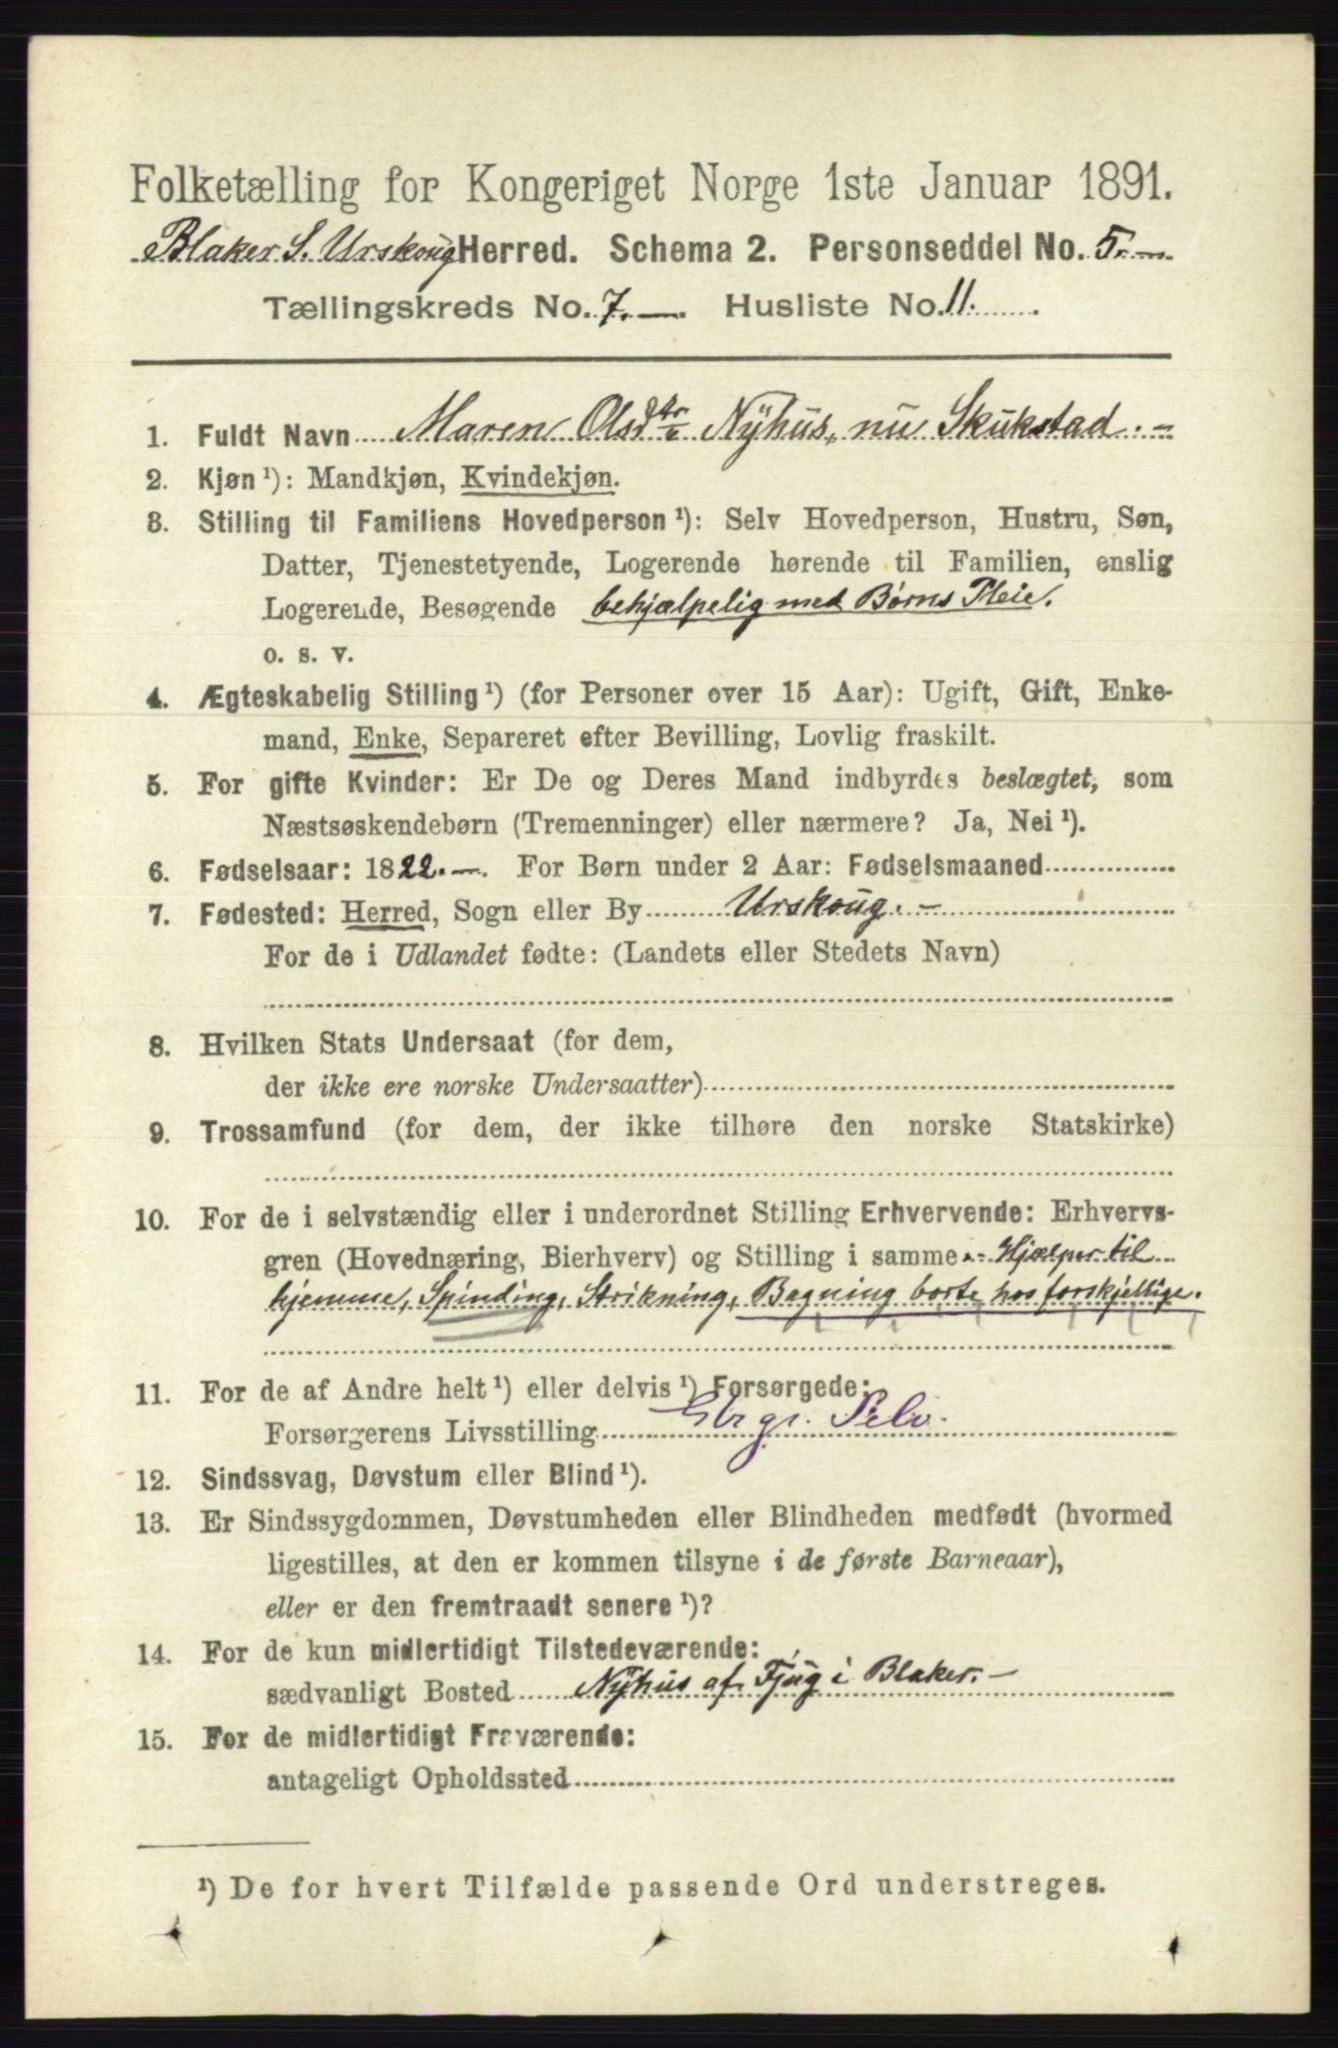 Folketælling for Kongeriget Norge 1ste Januar 1891.
Blaker S. Urskoug Herred. Schema 2. Personseddel No. 5.
Tællingskreds No. 7. Husliste No. 11.
1. Fuldt Navn Maren Olsdtr Nÿhus, nu Skukstad.
2. Kjøn ¹): Mandkjøn, Kvindekjøn.
3. Stilling til Familiens Hovedperson ¹): Selv Hovedperson, Hustru, Søn,
Datter, Tjenestetyende, Logerende hørende til Familien, enslig
Logerende, Besøgende behjælpelig med Børns Pleie.
o. s. v.
4. Ægteskabelig Stilling ¹) (for Personer over 15 Aar): Ugift, Gift, Enke-
mand, Enke, Separeret efter Bevilling, Lovlig fraskilt.
5. For gifte Kvinder: Er De og Deres Mand indbyrdes beslægtet, som
Næstsøskendebørn (Tremenninger) eller nærmere? Ja, Nei ¹).
6. Fødselsaar: 1822. For Børn under 2 Aar: Fødselsmaaned
7. Fødested: Herred, Sogn eller By Urskoug.
For de i Udlandet fødte: (Landets eller Stedets Navn)
8. Hvilken Stats Undersaat (for dem,
der ikke ere norske Undersaatter)
9. Trossamfund (for dem, der ikke tilhøre den norske Statskirke)
10. For de i selvstændig eller i underordnet Stilling Erhvervende: Erhvervs-
gren (Hovednæring, Bierhverv) og Stilling i samme Hjælper til
hjemme, Spinding, Strikning, Bagning borte hos forskjellige.
11. For de af Andre helt ¹) eller delvis ¹) Forsørgede:
Forsørgerens Livsstilling
12. Sindssvag, Døvstum eller Blind ¹).
13. Er Sindssygdommen, Døvstumheden eller Blindheden medfødt (hvormed
ligestilles, at den er kommen tilsyne i de første Barneaar),
eller er den fremtraadt senere ¹)?
14. For de kun midlertidigt Tilstedeværende:
sædvanligt Bosted Nÿhus af Fjug i Blaker.
15. For de midlertidigt Fraværende:
antageligt Opholdssted
¹) De for hvert Tilfælde passende Ord understreges.